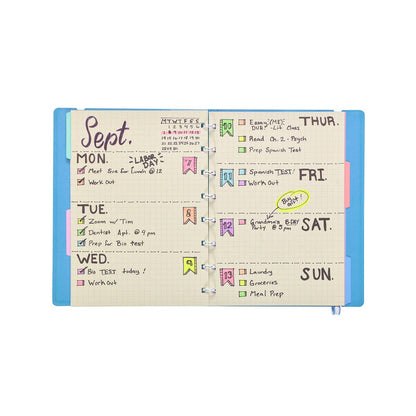 Sept.
M T W T F S S
MON.
LABOR DAY
7
Meet Sue for Lunch @ 12
Work Out
TUE.
8
Zoom w/ Tim
Dentist Apt. @ 4 pm
Prep for Bio test
WED.
9
Bio TEST today!
Work Out
THUR.
10
Essay (ME)
DUE! - Lit Class
Read Ch. 2 - Psych
Prep Spanish Test
FRI.
11
Spanish TEST!
Work Out
SAT.
12
Grandma's BDAY
Party @ 5 pm
SUN.
13
Laundry
Groceries
Meal Prep